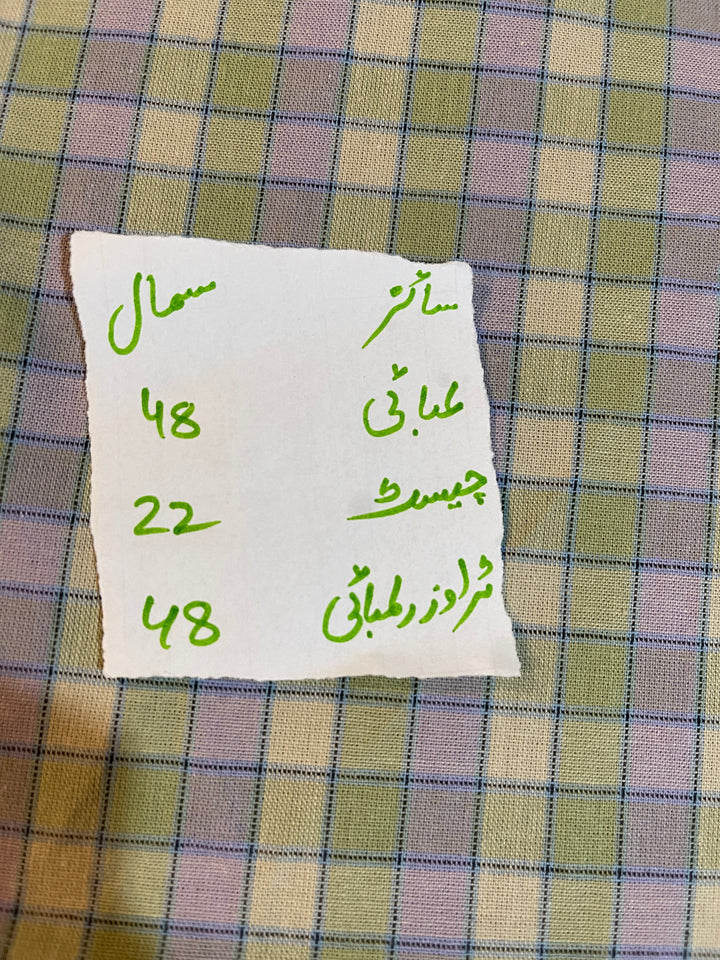 سائز سمال
لمبائی 48
چیسٹ 22
ٹراوزر لمبائی 48